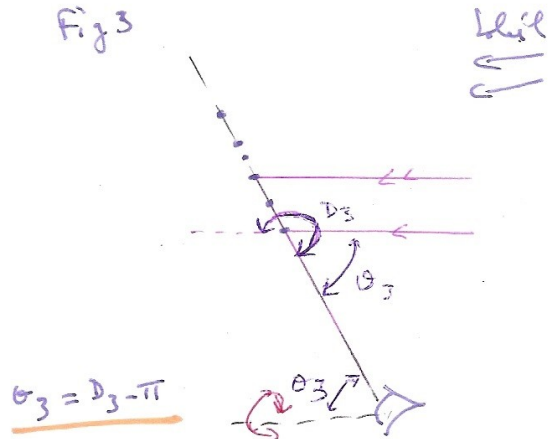 Fig 3
Soleil
D₃
θ₃
θ₃
θ₃ = D₃ - π